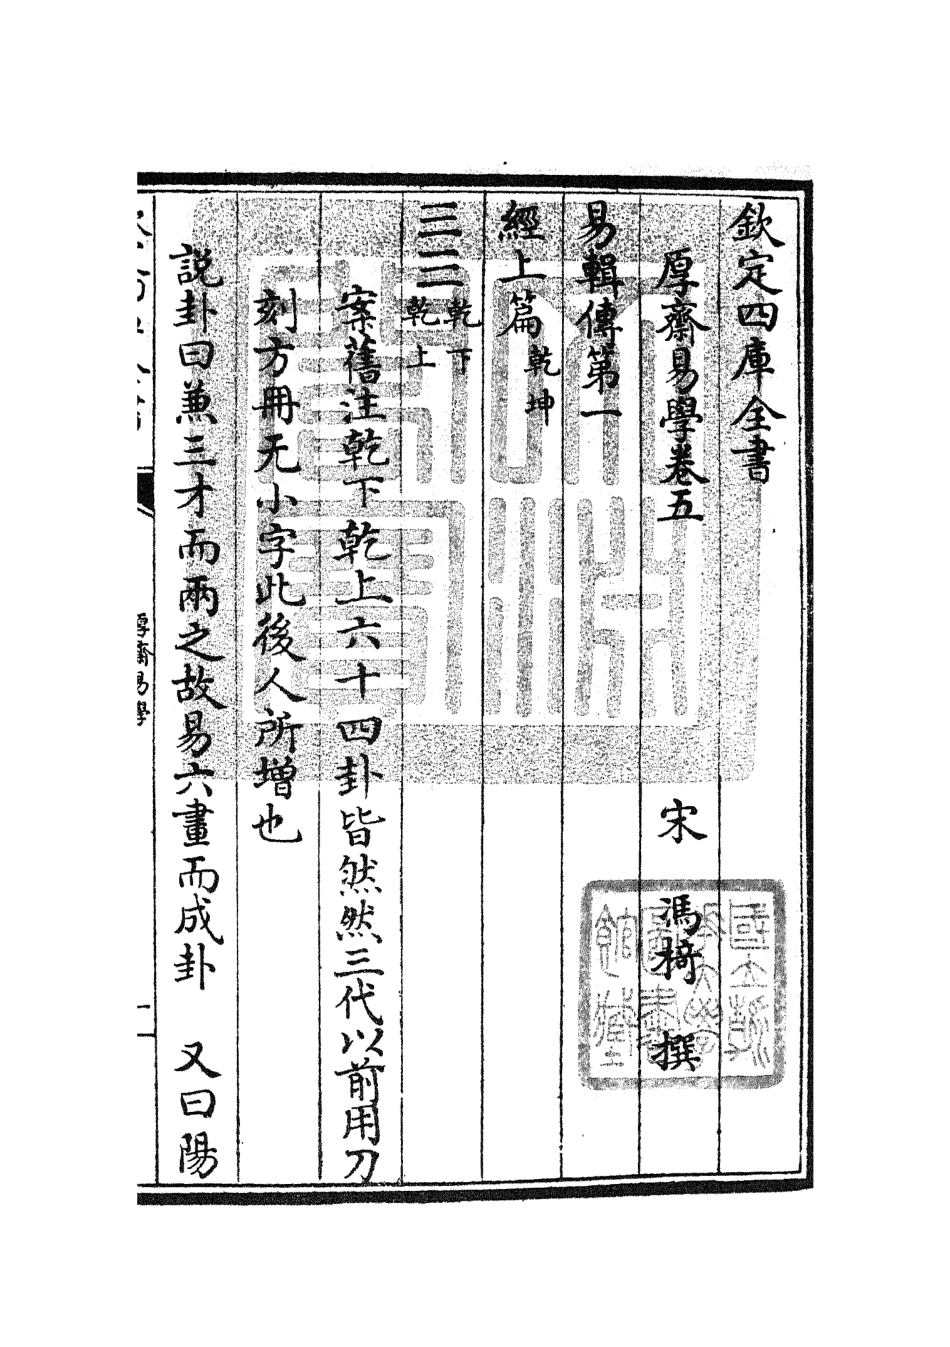 欽定四庫全書
厚齋易學卷五 宋 馮椅 撰
易輯傳第一
經上篇 乾坤
☰☰ 乾下乾上
案舊注乾下乾上六十四卦皆然然三代以前用刀
刻方冊无小字此後人所增也
說卦曰兼三才而兩之故易六畫而成卦 又曰陽
厚齋易學
一